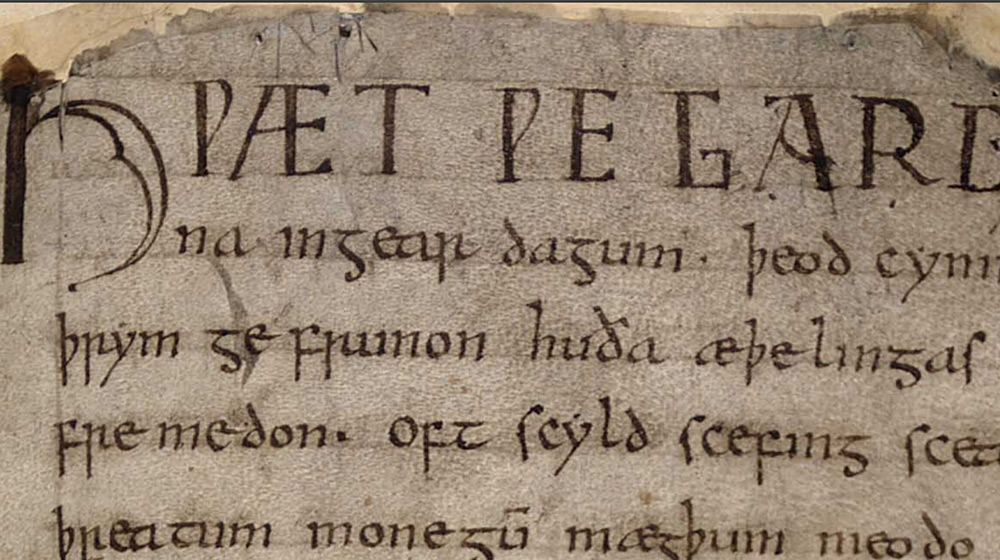 HǷÆT ǷE GARDE
na ingear dagum. þeod cyni
þrym ge frunon huða æþelingas
fremedon. oft scyld scefing scea
þreatum monegū mægþum meodo